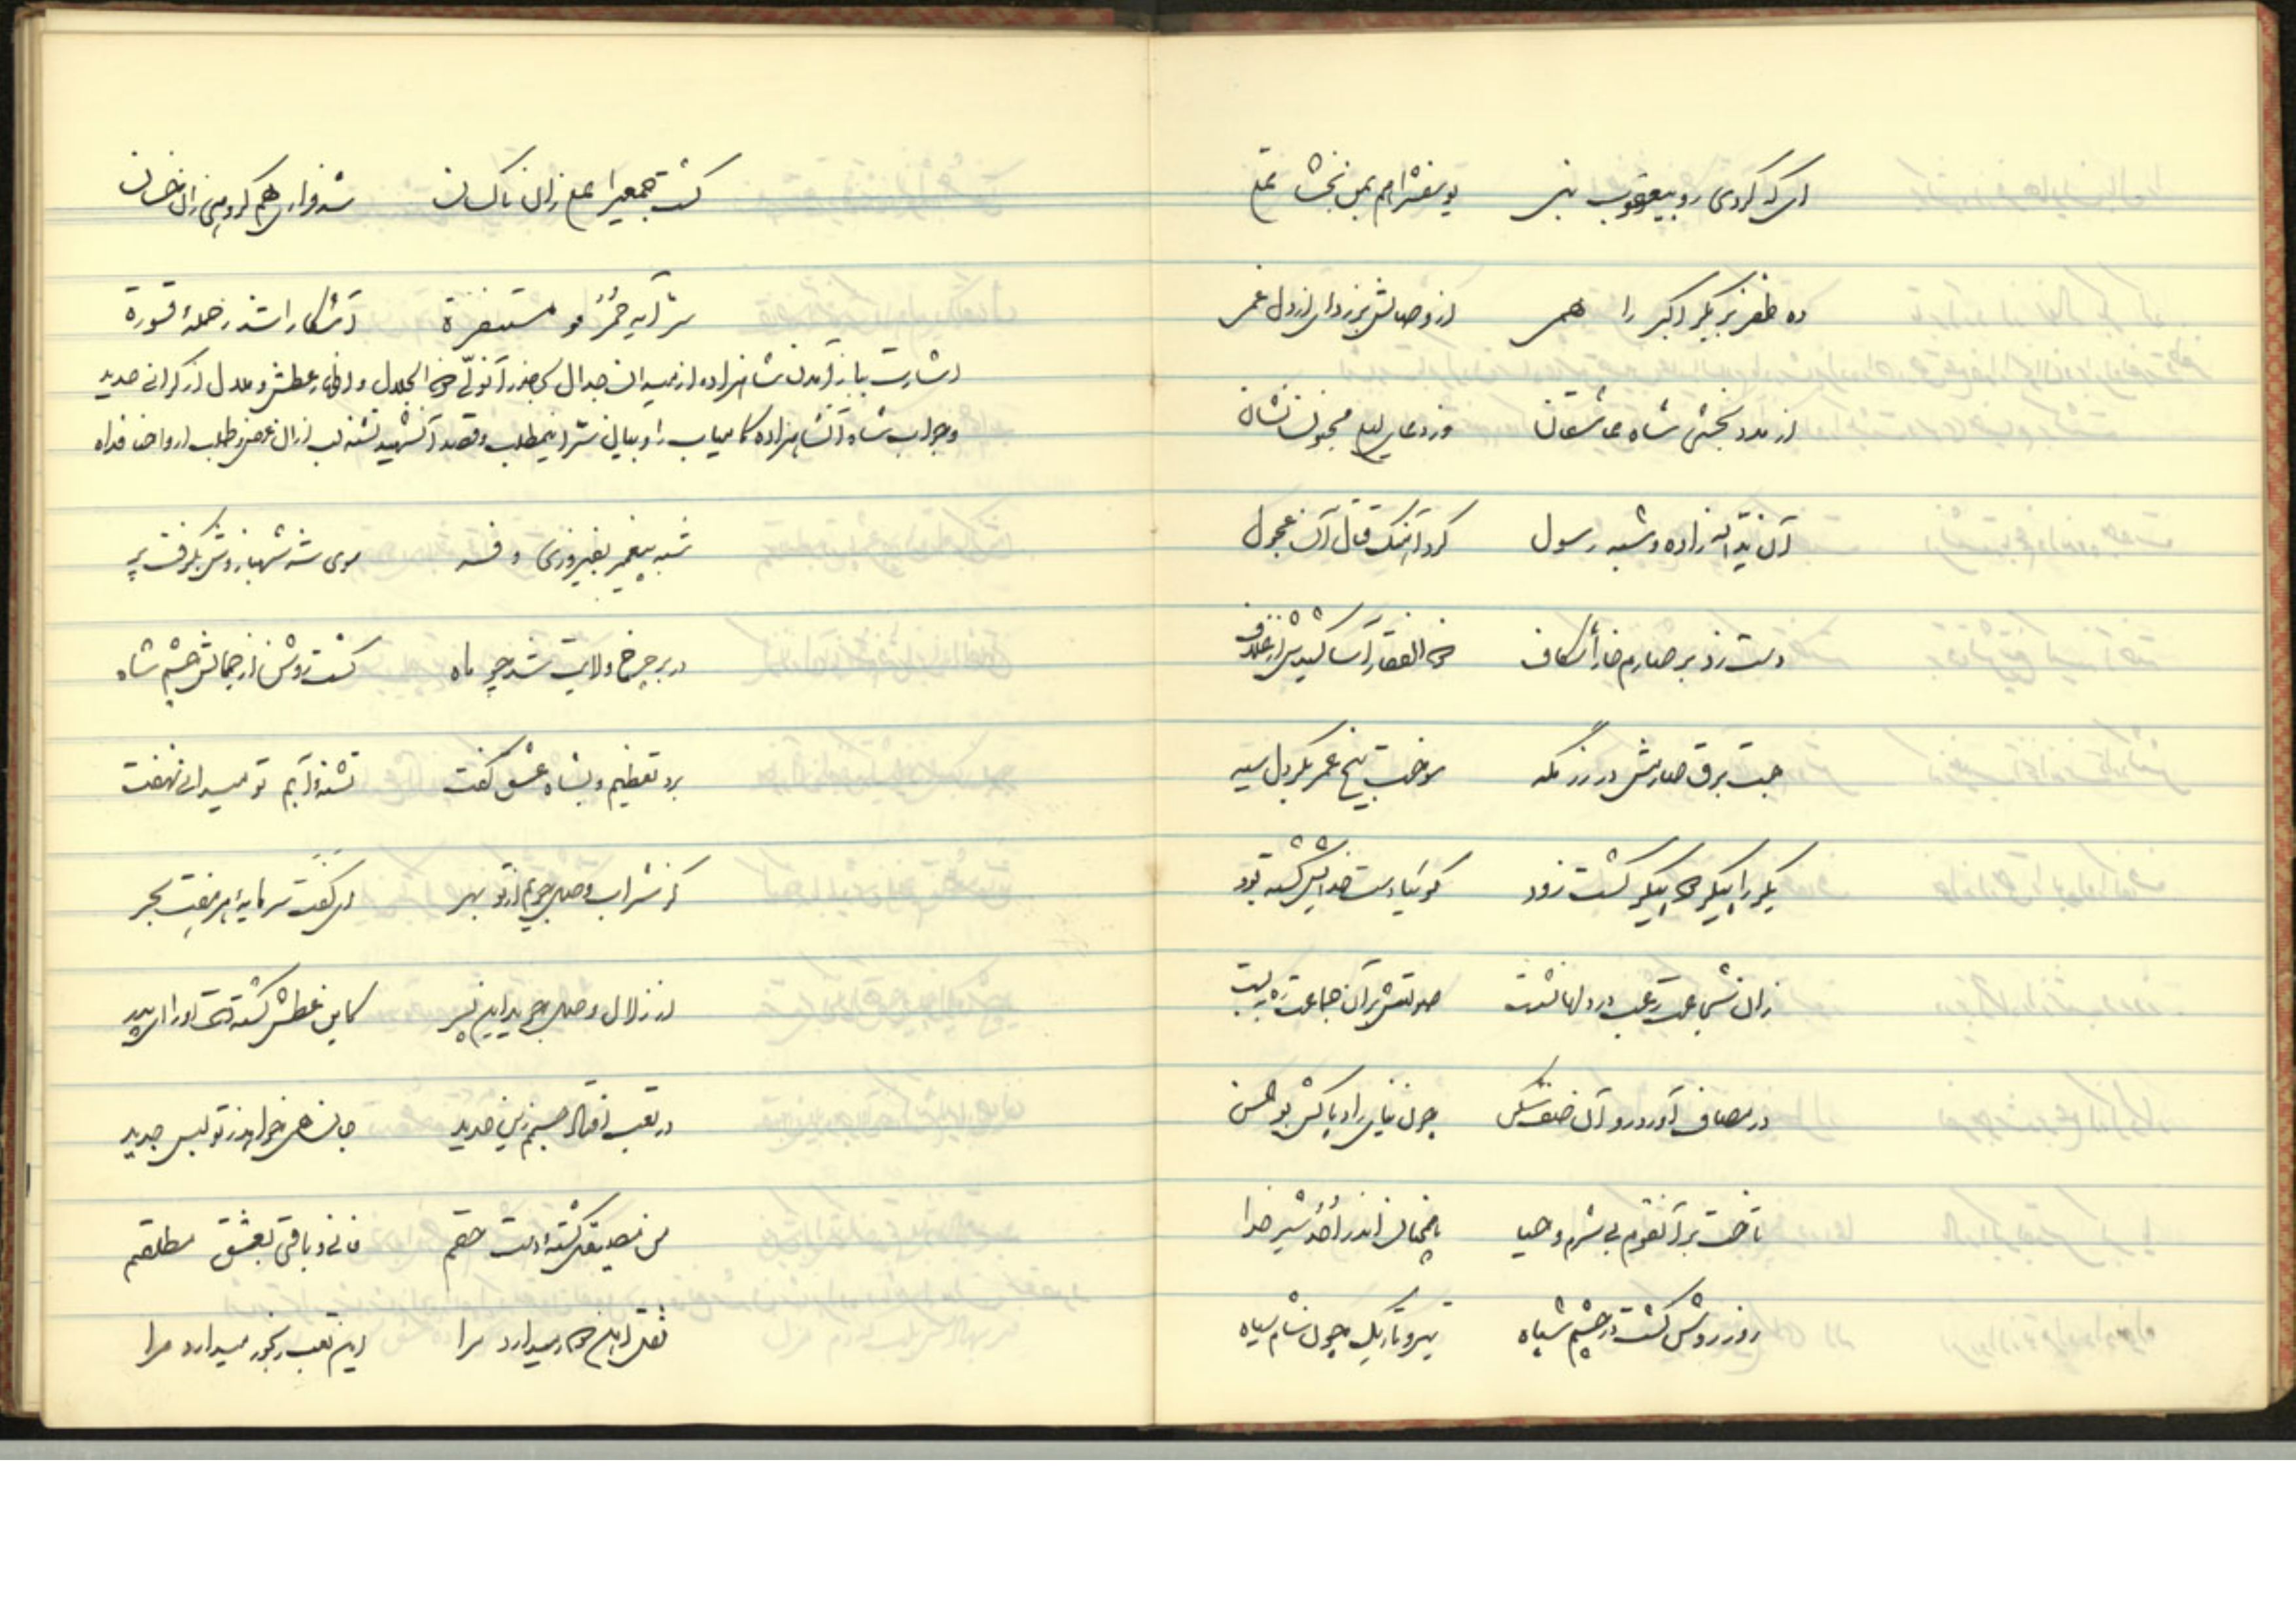 ای که کردی رو بیعقوب نبی یوسفش را هم بمن بخشا تمی
ده ظفر بر بکر اکبر را همی از وصالش بر زدای از دل غمی
از مدد بخشی شاه عاشقان وز دعای لیلی مجنون نشان
آن یداله زاده و شبه رسول کرد آهنگ قتال آن عجول
دست زد بر صارم خارا شکاف ذوالفقار آسا کشیدش از غلاف
جست برق صارمش در رزمگه سوخت بیخ عمر بکر دل سیه
بکر را پیکر دو پیکر گشت زود گوئیا دست خدایش کشته بود
زان شجاعت رعب در دلها نشست صولتش بر آن جماعت ره ببست
در مصاف آورد رو آن صف شکن چون نیای راد پاکش بوالحسن
تاخت بر آنقوم بی شرم و حیا همچنان اندر احد شیر خدا
روز روشن گشت در چشم سپاه تیره و تاریک چون شام سیاه
کشت جمعی را علی زان ناکسان شد فراری هم گروهی زان خسان
سر آیه حمر مستنفرة آشکارا شد ز حمله قسورة
اشارت بباز آمدن شاهزاده از میدان جدال بحضور آنولی ذو الجلال و اظهار عطش و ملال از گرانی حدید
و جواب شاه آنشاهزاده کامیاب را و بیان سر اینمطلب و قصد آنشهید تشنه لب از آن عرض و طلب ارواحنا فداه
شبه پیغمبر بفیروزی و فر سوی شه شهباز وش بگرفت پر
در بر چرخ ولایت شد چو ماه گشت روشن از جمالش چشم شاه
برد تعظیم و بشاه عشق گفت تشنه آبم تو میدانی نهفت
کز شراب وصل جویم از تو بهر ای کفت سرمایه هر هفت بحر
از زلال وصل جوید این پسر کاین عطش کشته است او را ای پدر
در تعب افتاد جسم زین حدید جان همی خواهد ز تو لبس جدید
من بصدیق کشته است حقم فانی و باقی بعشق مطلقم
ثقل آهن خوار میدارد مرا این تعب رنجور میدارد مرا